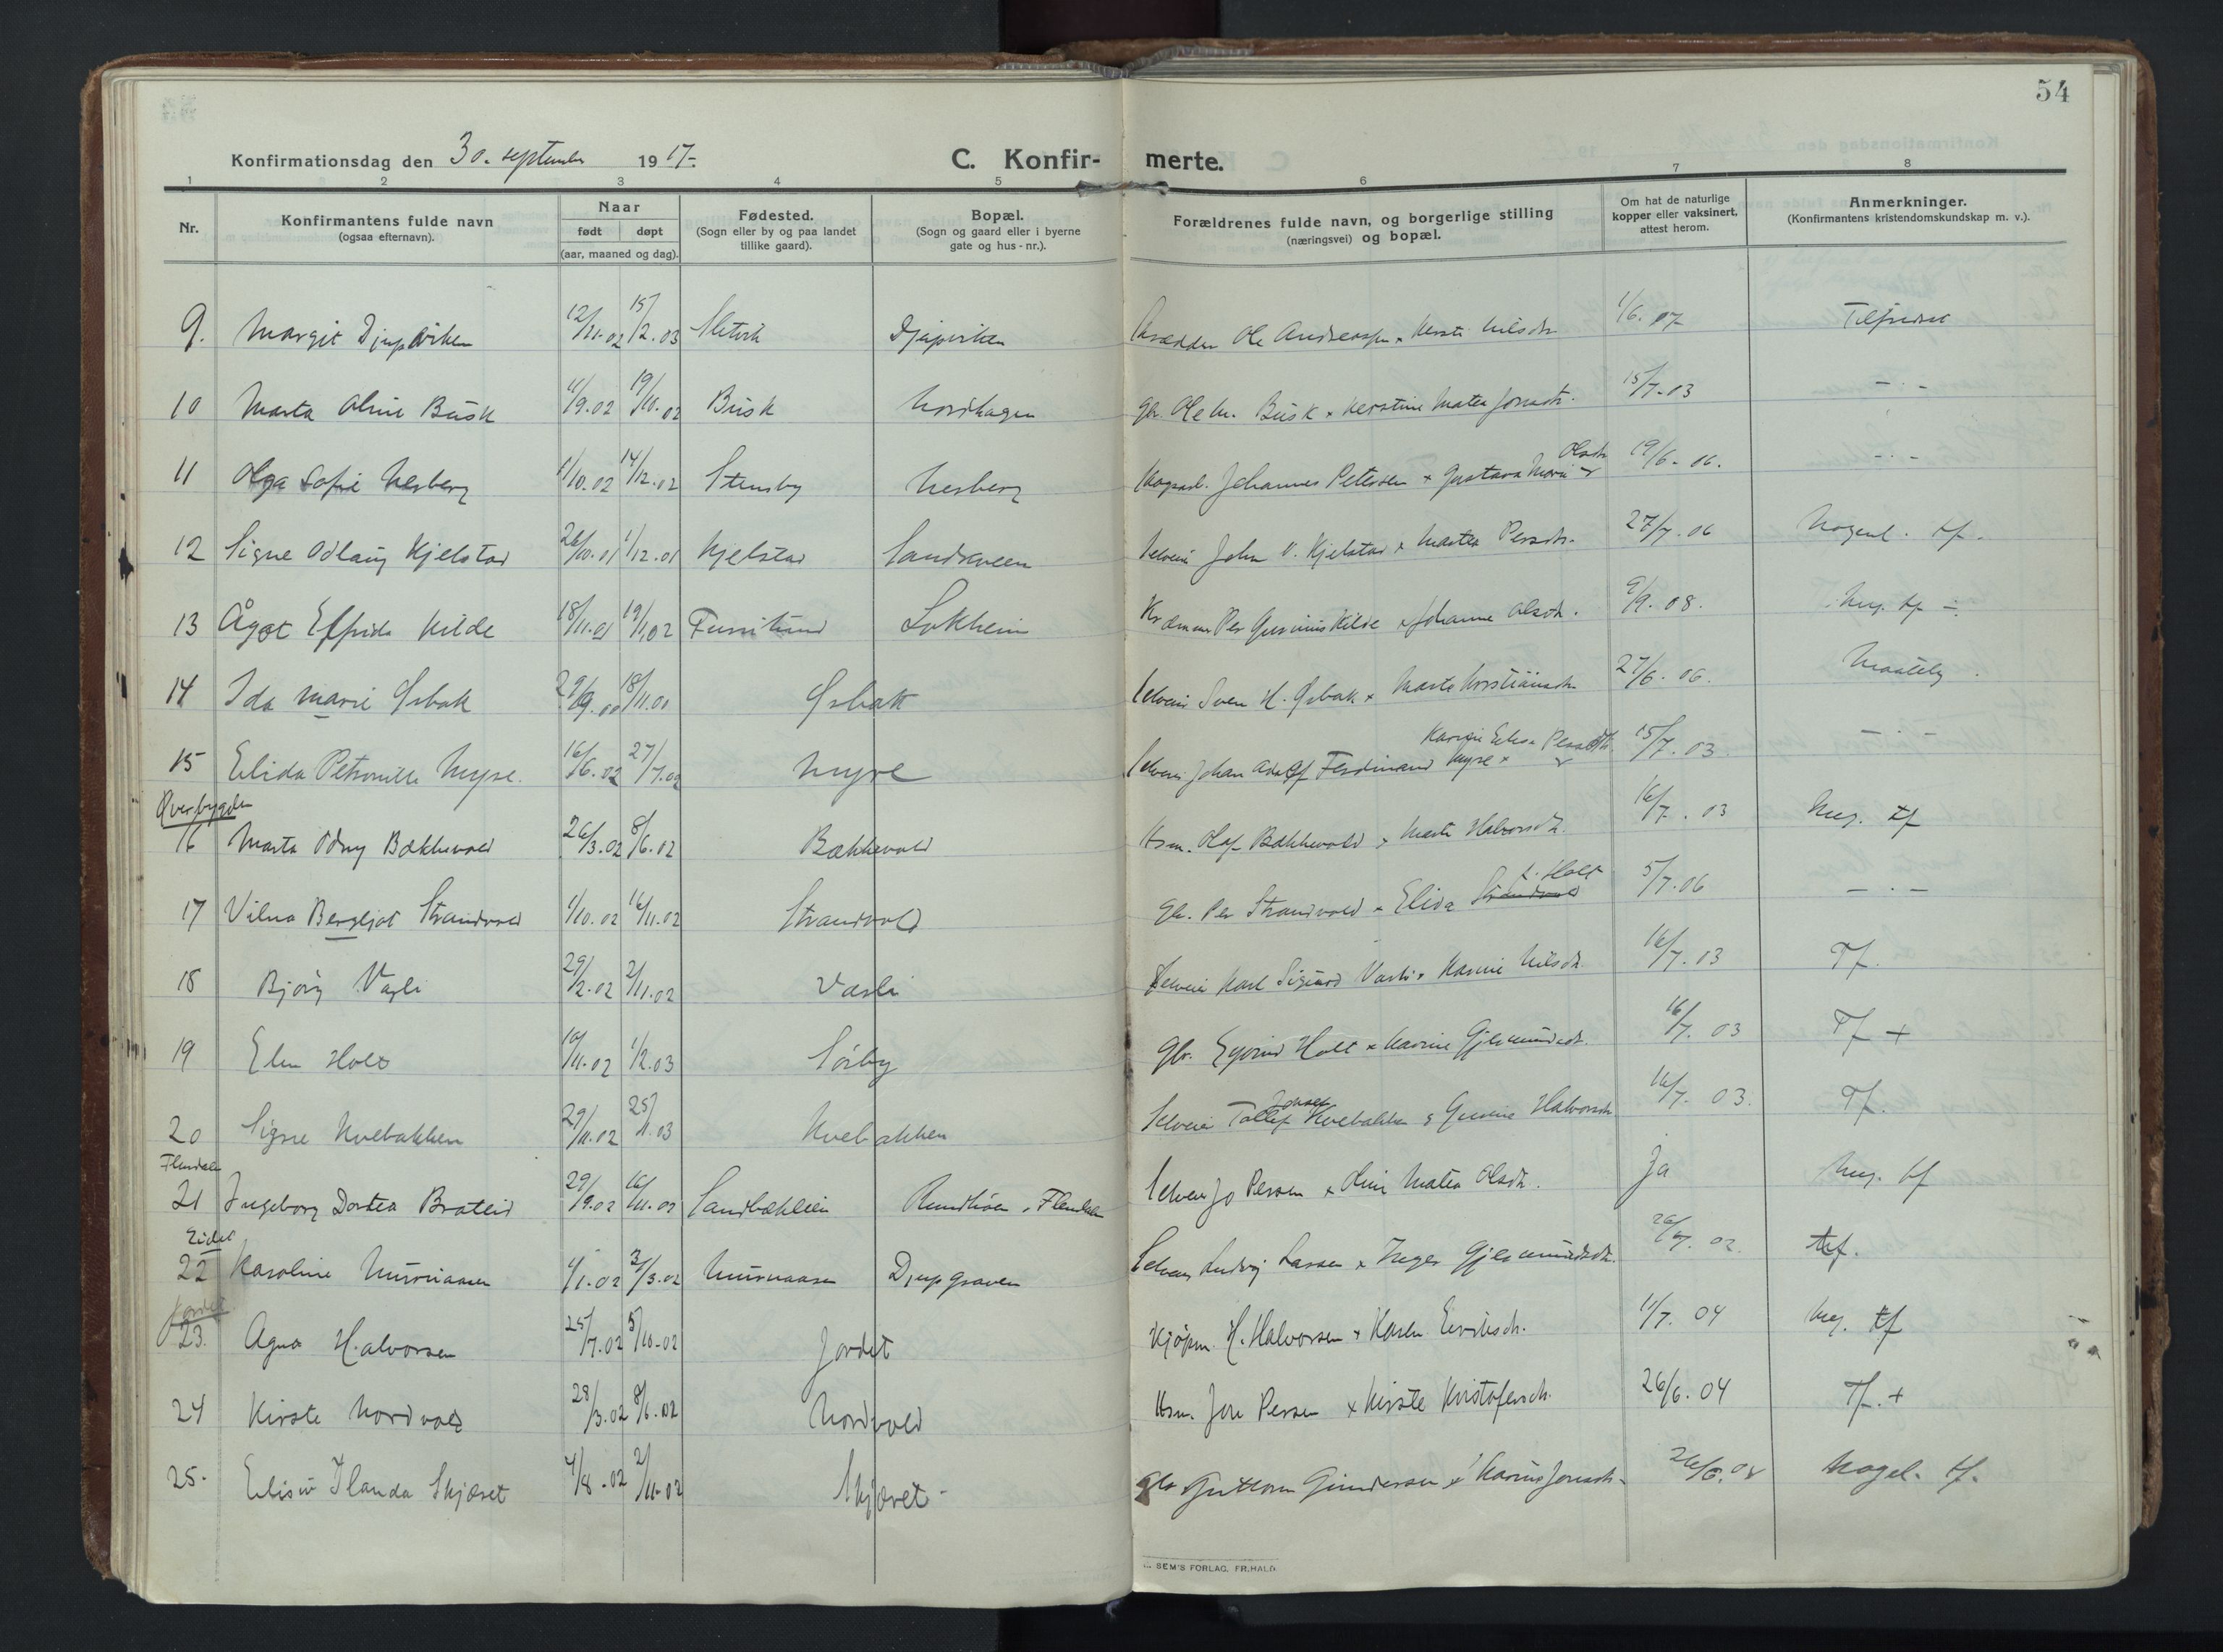 54
Konfirmationsdag den 30. september 1917.
C. Konfir- merte.
1 2 3 4 5 6 7 8
Nr.
Konfirmantens fulde navn
(ogsaa efternavn).
Naar
født døpt
(aar, maaned og dag).
Fødested.
(Sogn eller by og paa landet
tillike gaard).
Bopæl.
(Sogn og gaard eller i byerne
gate og hus-nr.).
Forældrenes fulde navn, og borgerlige stilling
(næringsvei) og bopæl.
Om hat de naturlige
kopper eller vaksinert,
attest herom.
Anmerkninger.
(Konfirmantens kristendomskundskap m. v.).
9. Margit Djupviken 12/11.02 15/2.03 Djupviken Ole Andreassen x Kersti Nilsdtr 1/6.07 Tilfredss
10 Marta Oline Busk 4/9.02 19/10.02 Busk Nordhagen Gbr. Ole M. Busk x Kerstine Matea Jonsdtr. 15/7-03 -.-
11 Olga Sofie Nesberg 1/10.02 14/12.02 Stensby Nesberg Johannes Petersen x Gustava Marie Olsdtr 19/6-06. -.-
12 Signe Odlaug Kjelstad 26/10.01 1/12.01 Kjelstad Sandkveen Selveier John O. Kjelstad x Martea Persdtr. 27/7.06 Nogenl. tf.
13 Ågot Elfrida Kilde 18/11.01 19/1.02 Lokheim Per Gunerius Kilde x Johanne Olsdtr. 9/9.08. Meg. tf -
14 Ida Marie Ørbak 29/9.00 18/11.00 Ørbak Selveier Sven H. Ørbak x Marte Korstiansdtr 27/6.06. Maatelig.
15 Elida Petronille Myre. 16/6.02 27/7.02 Myre Selveier Johan Adolf Ferdinand Myre x Karine Elise Persdtr. 15/7.03 -.-
Øverbygden
16 Marta Odny Bækkevold 26/3.02 8/6.02 Bækkevold Hsm. Olaf Bækkevold x Marte Halvorsdtr. 16/7.03 Meg. tf
17 Vilma Bergljot Strandvold 1/10.02 16/11.02 Strandvold Gbr. Per Strandvold x Elida Strandvold f. Holt 5/7.06 -.-
18 Bjørg Vasli 29/2.02 2/11.02 Vasli Selveier Karl Sigurd Vasli x Karine Nilsdtr. 16/7.03 Tf.
19 Elen Holt 10/11.02 1/2.03 Sörby Gbr. Eyvind Holt x Karine Gjermundsdtr. 16/7.03 Tf +
20 Signe Kvebakken 29/11.02 25/1.03 Kvebakken Selveier Tollef Jonsen Kvebakken x Gunine Halvorsdtr 16/7.03. Tf.
Flendalen
21 Ingeborg Dortea Brateid 29/9.02 16/11.02 Sandbækliein Rundhöen, Flendalen Selveier Jo Persen x Oline Matea Olsdtr. Ja Meg. tf
Eidet
22 Karoline Murmaasen 4/1.02 2/3.02 Murmaasen Djupgraven Selveier Ludvig Larsen x Inger Gjermundsdtr. 26/7.02. tf.
Jordet
23. Agna Halvorsen 25/7.02 5/10-02 Jordet Kjøpm. H. Halvorsen x Karen Eriksdtr. 11/7.04 Meg. tf
24 Kirste Nordvold 28/3.02 8/6.02 Nordvold Hsm. Jon Persen x Kirste Kristofersdtr. 26/6.04 Tf. +
25. Elisiv Ilanda Skjæret 4/8.02 2/11-02 Skjæret- Gbr Guttorm Gundersen x Karine Jonsdtr. Nogel. tf.
SEM'S FORLAG, FR.HALD